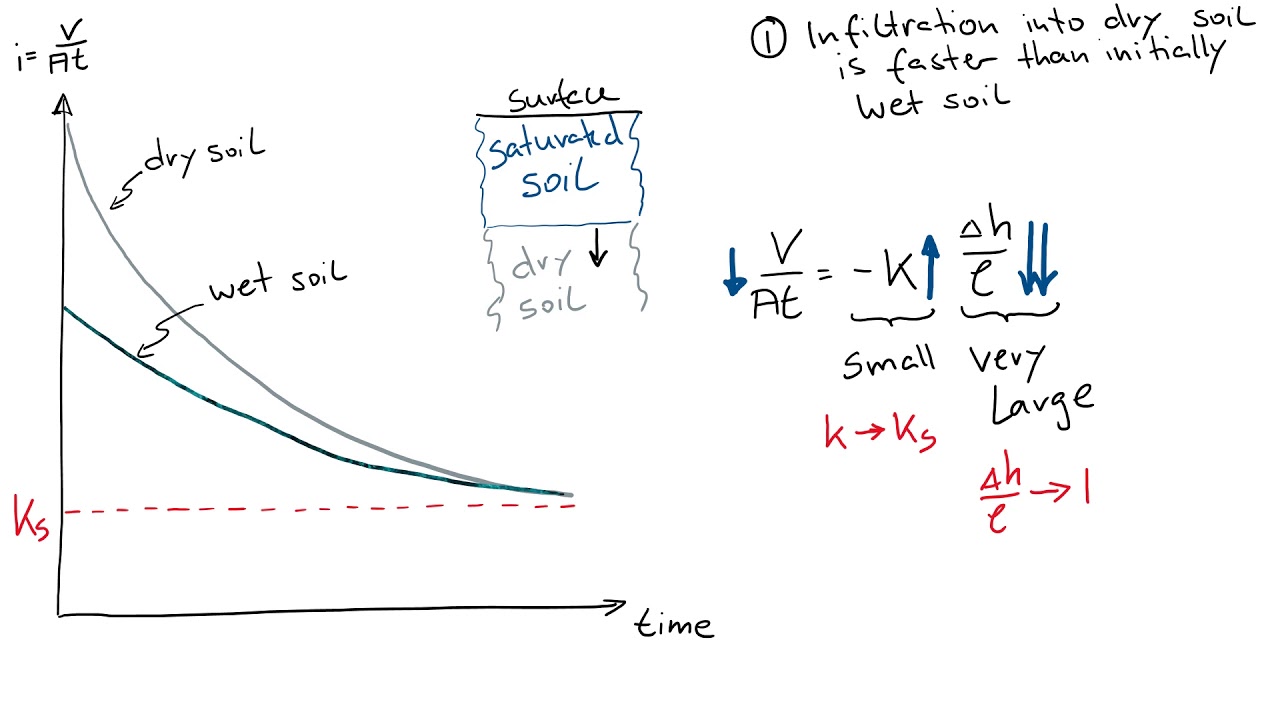 i = V/At
dry soil
wet soil
Ks
time
surface
saturated
soil
dry
soil
① Infiltration into dry soil
is faster than initially
wet soil
↓ V/At = -K ↑ Δh/ℓ ↓↓
small very
Large
k → Ks
Δh/ℓ → 1